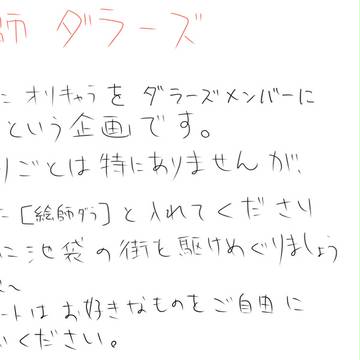 師 ダラーズ
にオリキャラをダラーズメンバーに
という企画です。
りごとは特にありませんが、
に[絵師ダラ]と入れてください
に池袋の街を駆けめぐりましょう
ートはお好きなものをご自由に
ください。